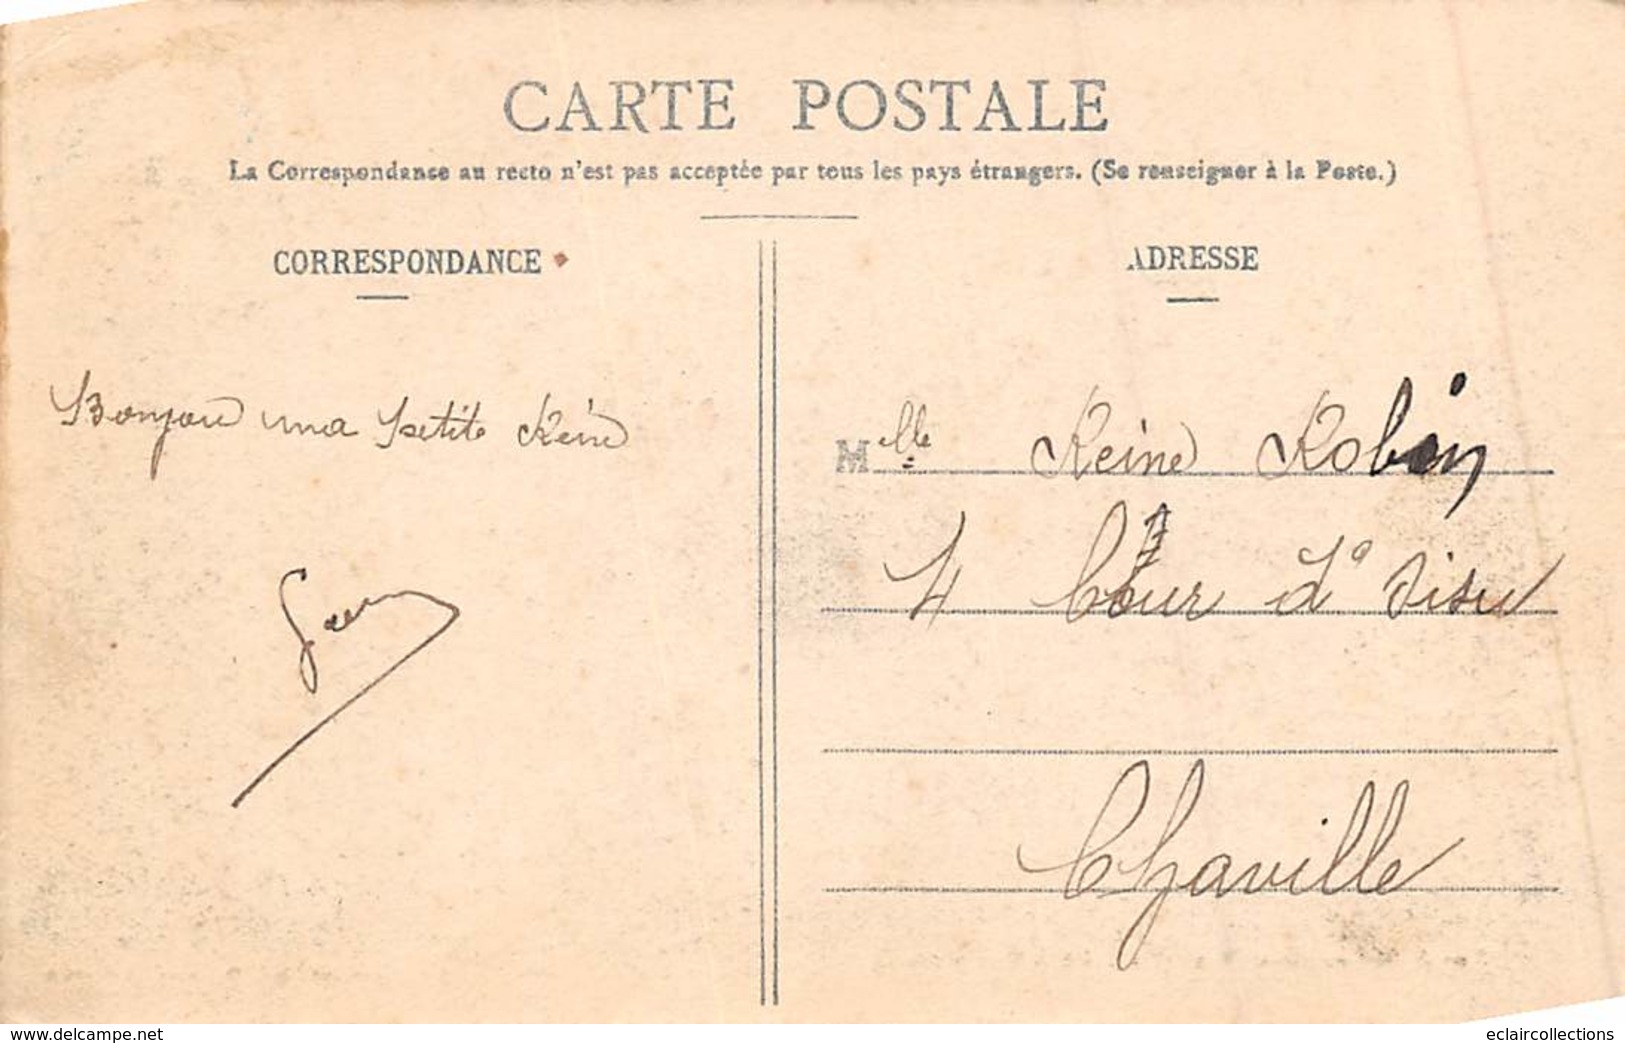 CARTE POSTALE
La Correspondance au recto n'est pas acceptée par tous les pays étrangers. (Se renseigner à la Poste.)
CORRESPONDANCE
ADRESSE
Bonjour ma petite Reine
Melle Reine Robin
4 Cour d'
Chaville
www.delcampe.net
eclaircollections